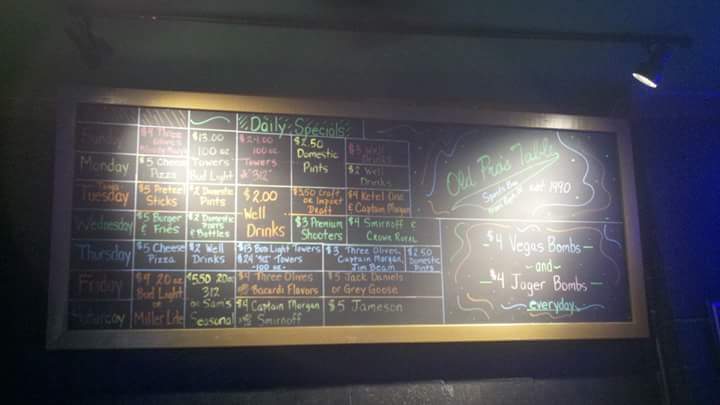 Daily Specials
Sunday
$4 Three
Olives
Bloody Mary
$13.00
100 oz
Towers
Bud Light
$24.00
100 oz
Towers
"312"
$2.50
Domestic
Pints
$3 Well
Drinks
Monday
$5 Cheese
Pizza
$2 Well
Drinks
Tuesday
$5 Pretzel
Sticks
$2 Domestic
Pints
$2.00
Well
Drinks
$3.50 Craft
or Import
Draft
$4 Ketel One
& Captain Morgan
Wednesday
$5 Burger
& Fries
$2 Domestic
Pints
& Bottles
$3 Premium
Shooters
$4 Smirnoff &
Crown Royal
Thursday
$5 Cheese
Pizza
$2 Well
Drinks
$13 Bud Light Towers
$24 "312" Towers
-100 oz-
$3 Three Olives,
Captain Morgan,
Jim Beam
$2.50
Domestic
Pints
Friday
$4 20 oz
Bud Light
$5.50 20oz
312
or Sam's
Seasonal
$4 Three Olives
Bacardi Flavors
$5 Jack Daniels
or Grey Goose
Saturday
Miller Lite
$4 Captain Morgan
Smirnoff
$5 Jameson
Old Pro's Table
est 1990
$4 Vegas Bombs
-and-
$4 Jager Bombs
everyday